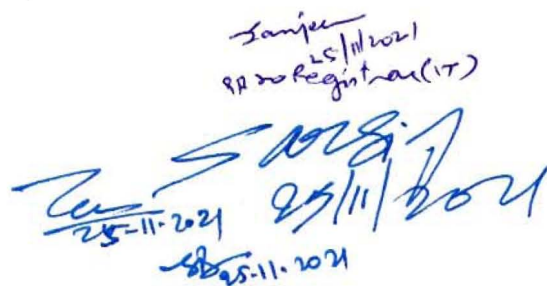 Sanjeev
25/11/2021
PA to Registrar (IT)
25/11/2021
25-11-2021
25-11-2021